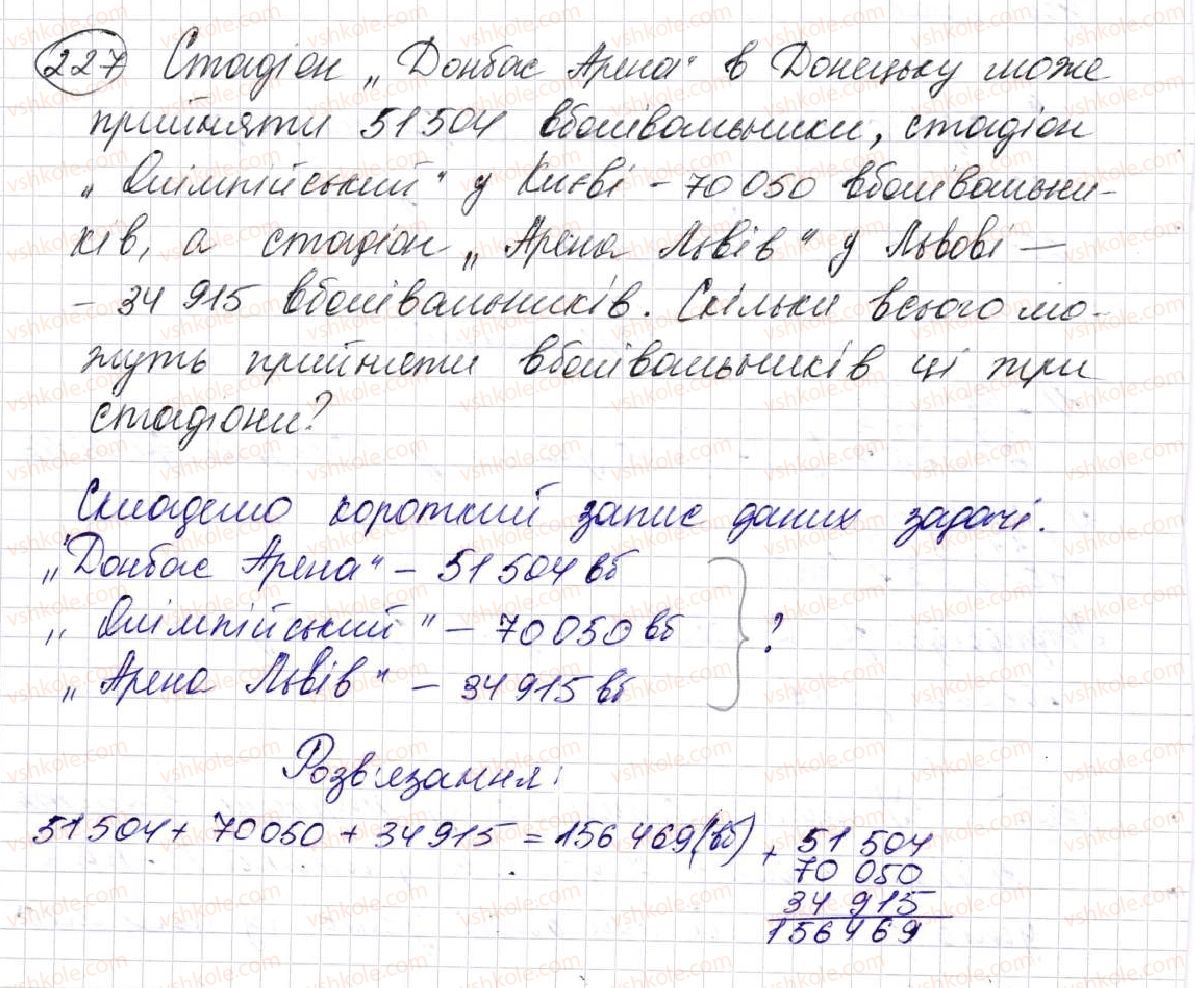 227 Стадіон „Донбас Арена" в Донецьку може
прийняти 51 504 вболівальники, стадіон
„Олімпійський" у Києві - 70 050 вболівальни-
ків, а стадіон „Арена Львів" у Львові —
- 34 915 вболівальників. Скільки всього мо-
жуть прийняти вболівальників ці три
стадіони?
Складемо короткий запис даних задачі.
„Донбас Арена" - 51 504 вб
„Олімпійський" - 70 050 вб
„Арена Львів" - 34 915 вб
?
Розв'язання:
51 504 + 70 050 + 34 915 = 156 469 (вб)
+ 51 504
70 050
34 915
156 469
vshkole.com